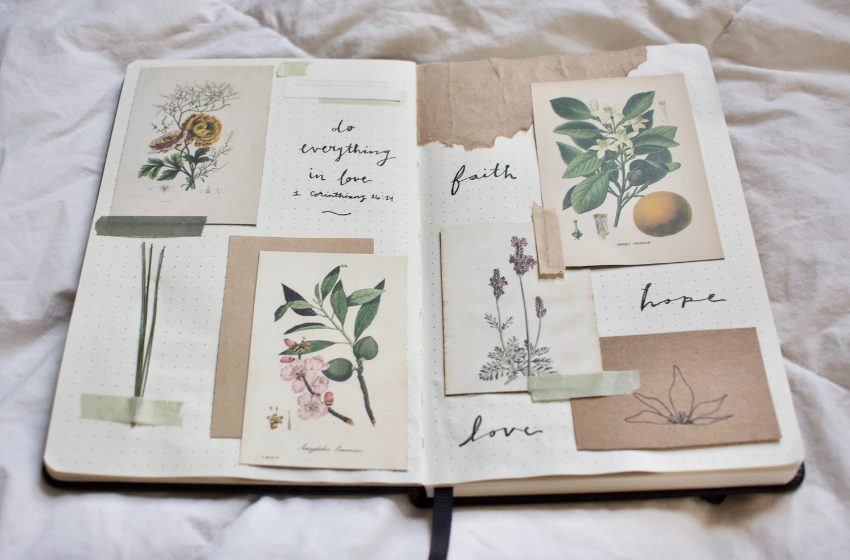 do
everything
in love
1 Corinthians 16:14
faith
SWEET ORANGE.
hope
love